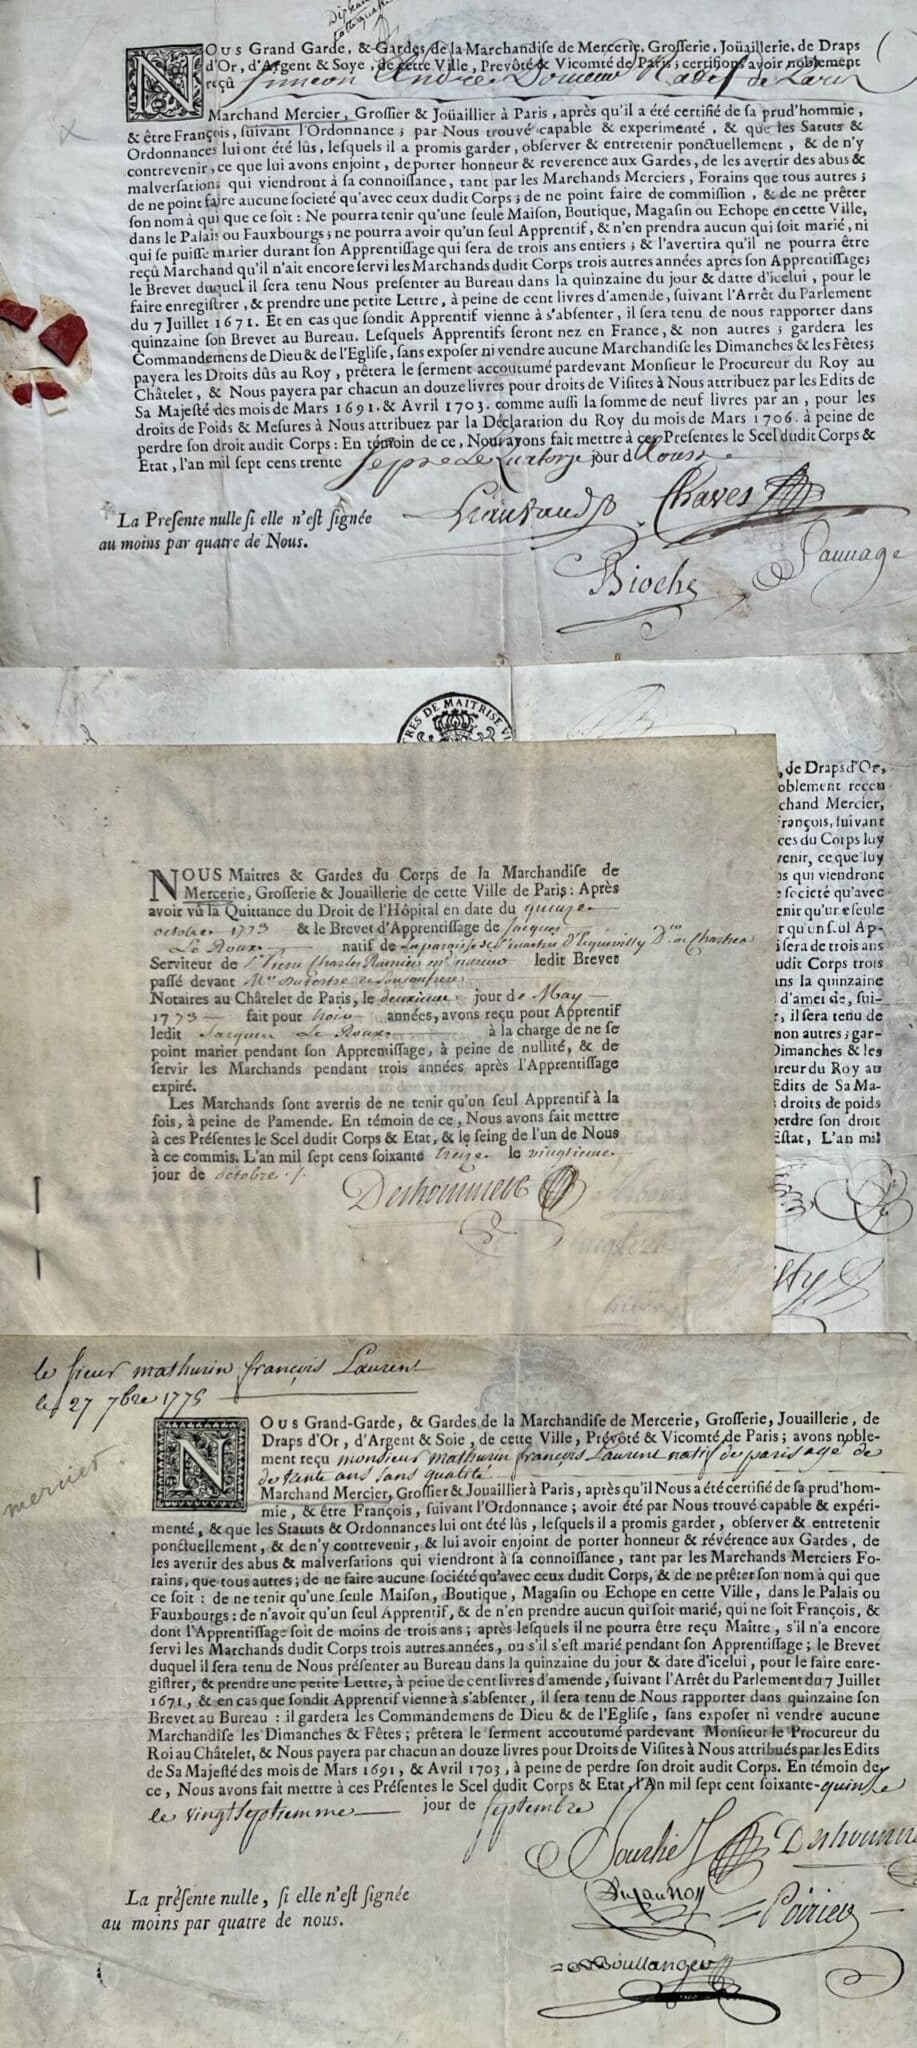 NOUS Grand Garde, & Gardes de la Marchandise de Mercerie, Grosserie, Joüaillerie, de Draps
d'Or, d'Argent & Soye, de cette Ville, Prevôté & Vicomté de Paris; certifions avoir noblement
reçû Simeon André natif de Paris
Marchand Mercier, Grossier & Joüaillier à Paris, après qu'il a été certifié de sa prud'hommie,
& être François, suivant l'Ordonnance; par Nous trouvé capable & experimenté, & que les Satuts &
Ordonnances lui ont été lûs, lesquels il a promis garder, observer & entretenir ponctuellement, & de n'y
contrevenir, ce que lui avons enjoint, de porter honneur & reverence aux Gardes, de les avertir des abus &
malversations qui viendront à sa connoissance, tant par les Marchands Merciers, Forains que tous autres;
de ne point faire aucune societé qu'avec ceux dudit Corps; de ne point faire de commission, & de ne prêter
son nom à qui que ce soit: Ne pourra tenir qu'une seule Maison, Boutique, Magasin ou Echope en cette Ville,
dans le Palais ou Fauxbourgs; ne pourra avoir qu'un seul Apprentif, & n'en prendra aucun qui soit marié, ni
qui se puisse marier durant son Apprentissage qui sera de trois ans entiers; & l'avertira qu'il ne pourra être
reçû Marchand qu'il n'ait encore servi les Marchands dudit Corps trois autres années après son Apprentissage;
le Brevet duquel il sera tenu Nous presenter au Bureau dans la quinzaine du jour & datte d'icelui, pour le
faire enregistrer, & prendre une petite Lettre, à peine de cent livres d'amende, suivant l'Arrêt du Parlement
du 7 Juillet 1671. Et en cas que sondit Apprentif vienne à s'absenter, il sera tenu de nous rapporter dans
quinzaine son Brevet au Bureau. Lesquels Apprentifs seront nez en France, & non autres; gardera les
Commandemens de Dieu & de l'Eglise, sans exposer ni vendre aucune Marchandise les Dimanches & les Fêtes;
payera les Droits dûs au Roy, prêtera le serment accoutumé pardevant Monsieur le Procureur du Roy au
Châtelet, & Nous payera par chacun an douze livres pour droits de Visites à Nous attribuez par les Edits de
Sa Majesté des mois de Mars 1691. & Avril 1703. comme aussi la somme de neuf livres par an, pour les
droits de Poids & Mesures à Nous attribuez par la Déclaration du Roy du mois de Mars 1706. à peine de
perdre son droit audit Corps: En témoin de ce, Nous ayons fait mettre à ces Presentes le Scel dudit Corps &
Etat, l'an mil sept cens trente sept le quatorze jour d'Aoust
La Presente nulle si elle n'est signée
au moins par quatre de Nous.
Chaves
Bioche Sauuage
TRES DE MAITRISE
NOUS Maitres & Gardes du Corps de la Marchandise de
Mercerie, Grosserie & Jouaillerie de cette Ville de Paris: Après
avoir vû la Quittance du Droit de l'Hôpital en date du quinze
octobre 1773 & le Brevet d'Apprentissage de Jacques
Le Roux natif de la paroisse de St martin D'Eguilly Dse de Chartres
Serviteur de Sr Pierre Charles Ramier md mercier ledit Brevet
passé devant Me
Notaires au Châtelet de Paris, le deuxieme jour de May
1773 fait pour trois années, avons reçu pour Apprentif
ledit Jacques Le Roux à la charge de ne se
point marier pendant son Apprentissage, à peine de nullité, & de
servir les Marchands pendant trois années après l'Apprentissage
expiré.
Les Marchands sont avertis de ne tenir qu'un seul Apprentif à la
fois, à peine de l'amende. En témoin de ce, Nous avons fait mettre
à ces Présentes le Scel dudit Corps & Etat, & le seing de l'un de Nous
à ce commis. L'an mil sept cens soixante treize le vingtieme
jour de octobre
, de Draps d'Or,
oblement receu
chand Mercier,
rançois, suivant
ces du Corps luy
venir, ce que luy
ns qui viendront
e societé qu'avec
enir qu'une seule
r qu'un seul Ap-
sera de trois ans
udit Corps trois
ans la quinzaine
d'amende, sui-
, il sera tenu de
non autres; gar-
Dimanches & les
reur du Roy au
Edits de Sa Ma-
s droits de poids
perdre son droit
Estat, L'an mil
le sieur mathurin françois Laurent
le 27 7bre 1775
mercier
NOUS Grand-Garde, & Gardes de la Marchandise de Mercerie, Grosserie, Jouaillerie, de
Draps d'Or, d'Argent & Soie, de cette Ville, Prévôté & Vicomté de Paris; avons noble-
ment reçu monsieur mathurin françois Laurent natif de paris agé de
trente ans sans qualité
Marchand Mercier, Grossier & Jouaillier à Paris, après qu'il Nous a été certifié de sa prud'hom-
mie, & être François, suivant l'Ordonnance; avoir été par Nous trouvé capable & expéri-
menté, & que les Statuts & Ordonnances lui ont été lûs, lesquels il a promis garder, observer & entretenir
ponctuellement, & de n'y contrevenir, & lui avoir enjoint de porter honneur & révérence aux Gardes, de
les avertir des abus & malversations qui viendront à sa connoissance, tant par les Marchands Merciers Fo-
rains, que tous autres; de ne faire aucune société qu'avec ceux dudit Corps, & de ne prêter son nom à qui que
ce soit: de ne tenir qu'une seule Maison, Boutique, Magasin ou Echope en cette Ville, dans le Palais ou
Fauxbourgs: de n'avoir qu'un seul Apprentif, & de n'en prendre aucun qui soit marié, qui ne soit François, &
dont l'Apprentissage soit de moins de trois ans; après lesquels il ne pourra être reçu Maître, s'il n'a encore
servi les Marchands dudit Corps trois autres années, ou s'il s'est marié pendant son Apprentissage; le Brevet
duquel il sera tenu de Nous présenter au Bureau dans la quinzaine du jour & date d'icelui, pour le faire enre-
gistrer, & prendre une petite Lettre, à peine de cent livres d'amende, suivant l'Arrêt du Parlement du 7 Juillet
1671, & en cas que sondit Apprentif vienne à s'absenter, il sera tenu de Nous rapporter dans quinzaine son
Brevet au Bureau: il gardera les Commandemens de Dieu & de l'Eglise, sans exposer ni vendre aucune
Marchandise les Dimanches & Fêtes; prêtera le serment accoutumé pardevant Monsieur le Procureur du
Roi au Châtelet, & Nous payera par chacun an douze livres pour Droits de Visites à Nous attribués par les Edits
de Sa Majesté des mois de Mars 1691, & Avril 1703, à peine de perdre son droit audit Corps. En témoin de
ce, Nous avons fait mettre à ces Présentes le Scel dudit Corps & Etat, l'An mil sept cent soixante-quinse
le vingt septiemme jour de septembre
La présente nulle, si elle n'est signée
au moins par quatre de nous.
Poirier
Boullanger